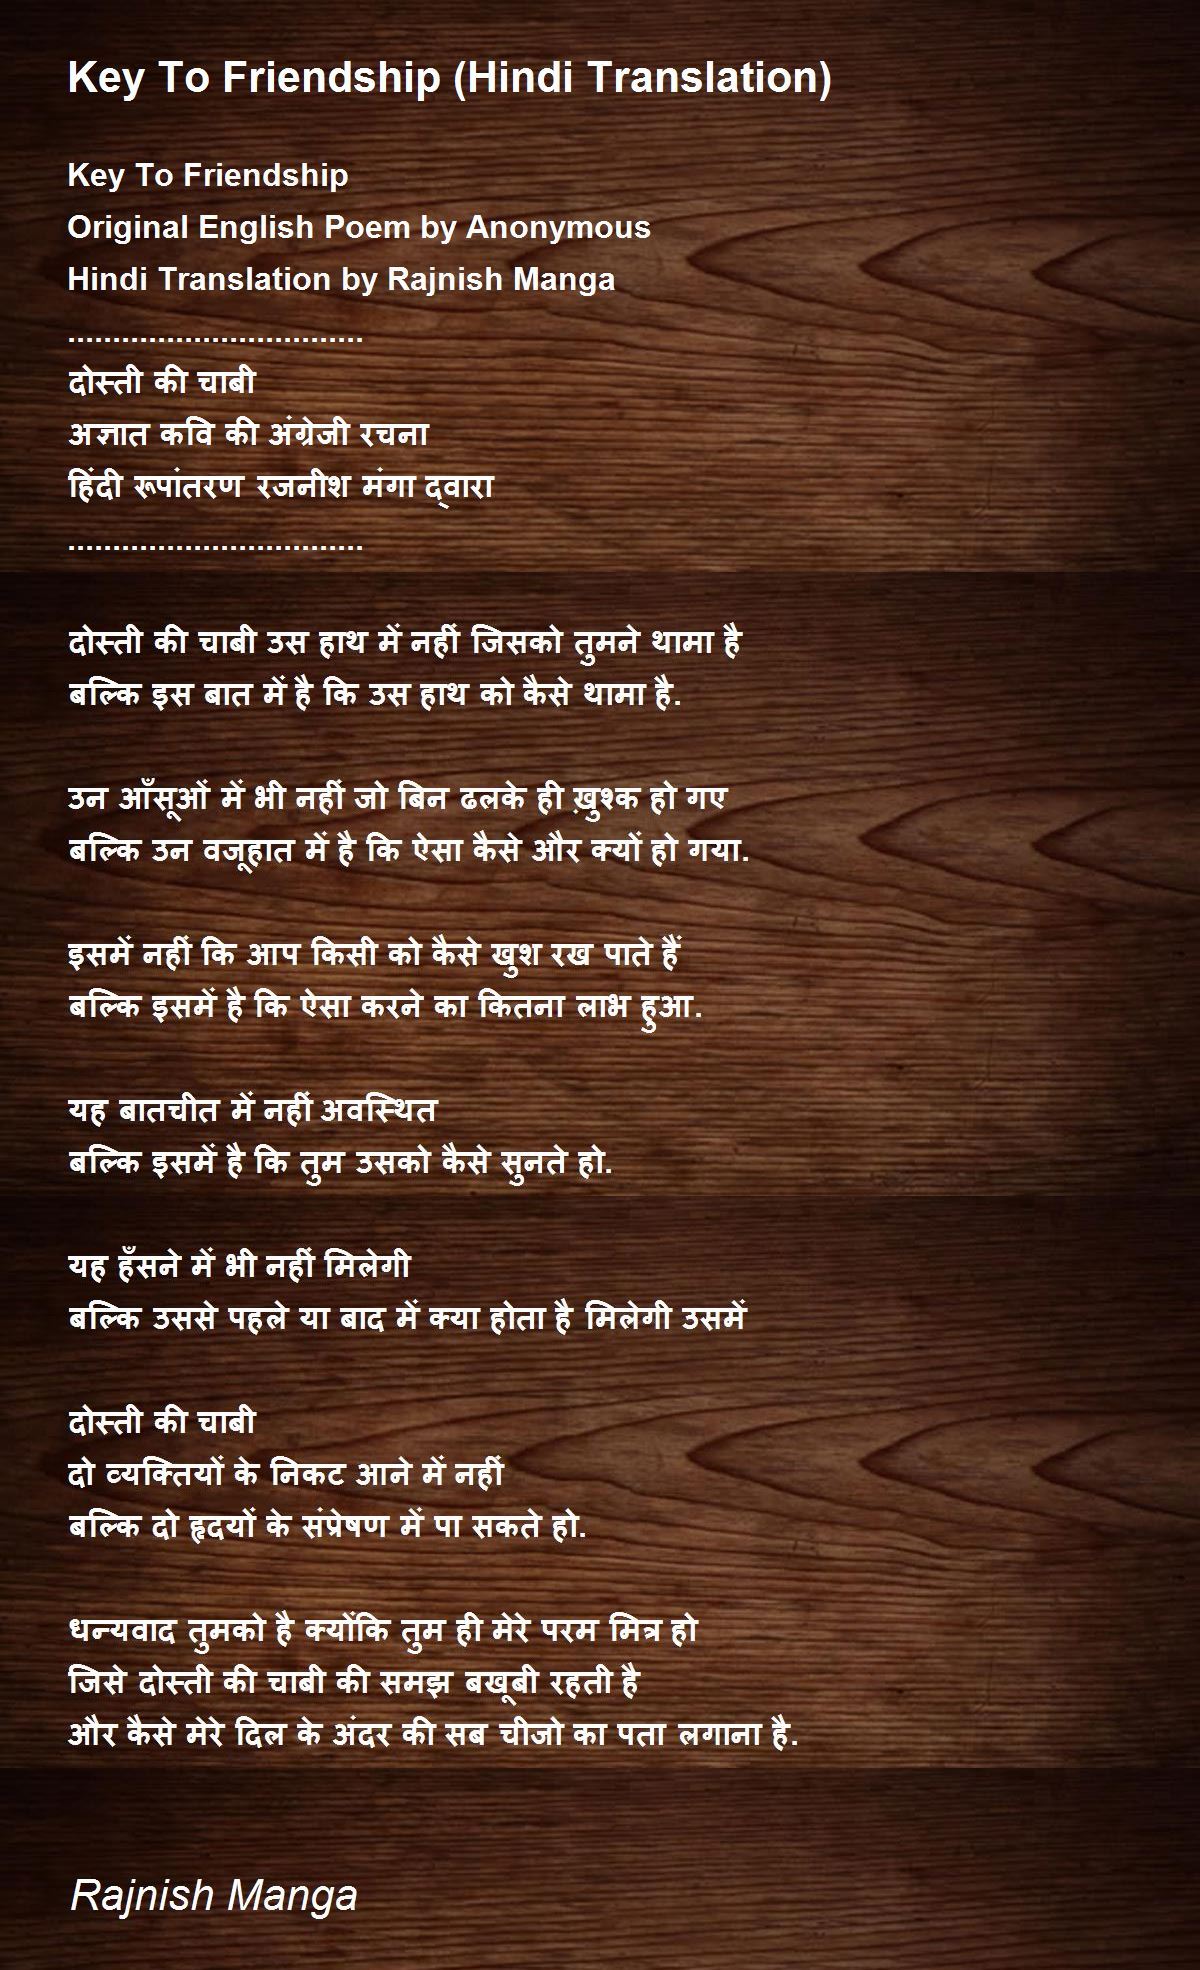 Key To Friendship (Hindi Translation)
Key To Friendship
Original English Poem by Anonymous
Hindi Translation by Rajnish Manga
.................................
दोस्ती की चाबी
अज्ञात कवि की अंग्रेजी रचना
हिंदी रूपांतरण रजनीश मंगा द्वारा
.................................
दोस्ती की चाबी उस हाथ में नहीं जिसको तुमने थामा है
बल्कि इस बात में है कि उस हाथ को कैसे थामा है.
उन आँसूओं में भी नहीं जो बिन ढलके ही ख़ुश्क हो गए
बल्कि उन वजूहात में है कि ऐसा कैसे और क्यों हो गया.
इसमें नहीं कि आप किसी को कैसे खुश रख पाते हैं
बल्कि इसमें है कि ऐसा करने का कितना लाभ हुआ.
यह बातचीत में नहीं अवस्थित
बल्कि इसमें है कि तुम उसको कैसे सुनते हो.
यह हँसने में भी नहीं मिलेगी
बल्कि उससे पहले या बाद में क्या होता है मिलेगी उसमें
दोस्ती की चाबी
दो व्यक्तियों के निकट आने में नहीं
बल्कि दो हृदयों के संप्रेषण में पा सकते हो.
धन्यवाद तुमको है क्योंकि तुम ही मेरे परम मित्र हो
जिसे दोस्ती की चाबी की समझ बखूबी रहती है
और कैसे मेरे दिल के अंदर की सब चीजो का पता लगाना है.
Rajnish Manga